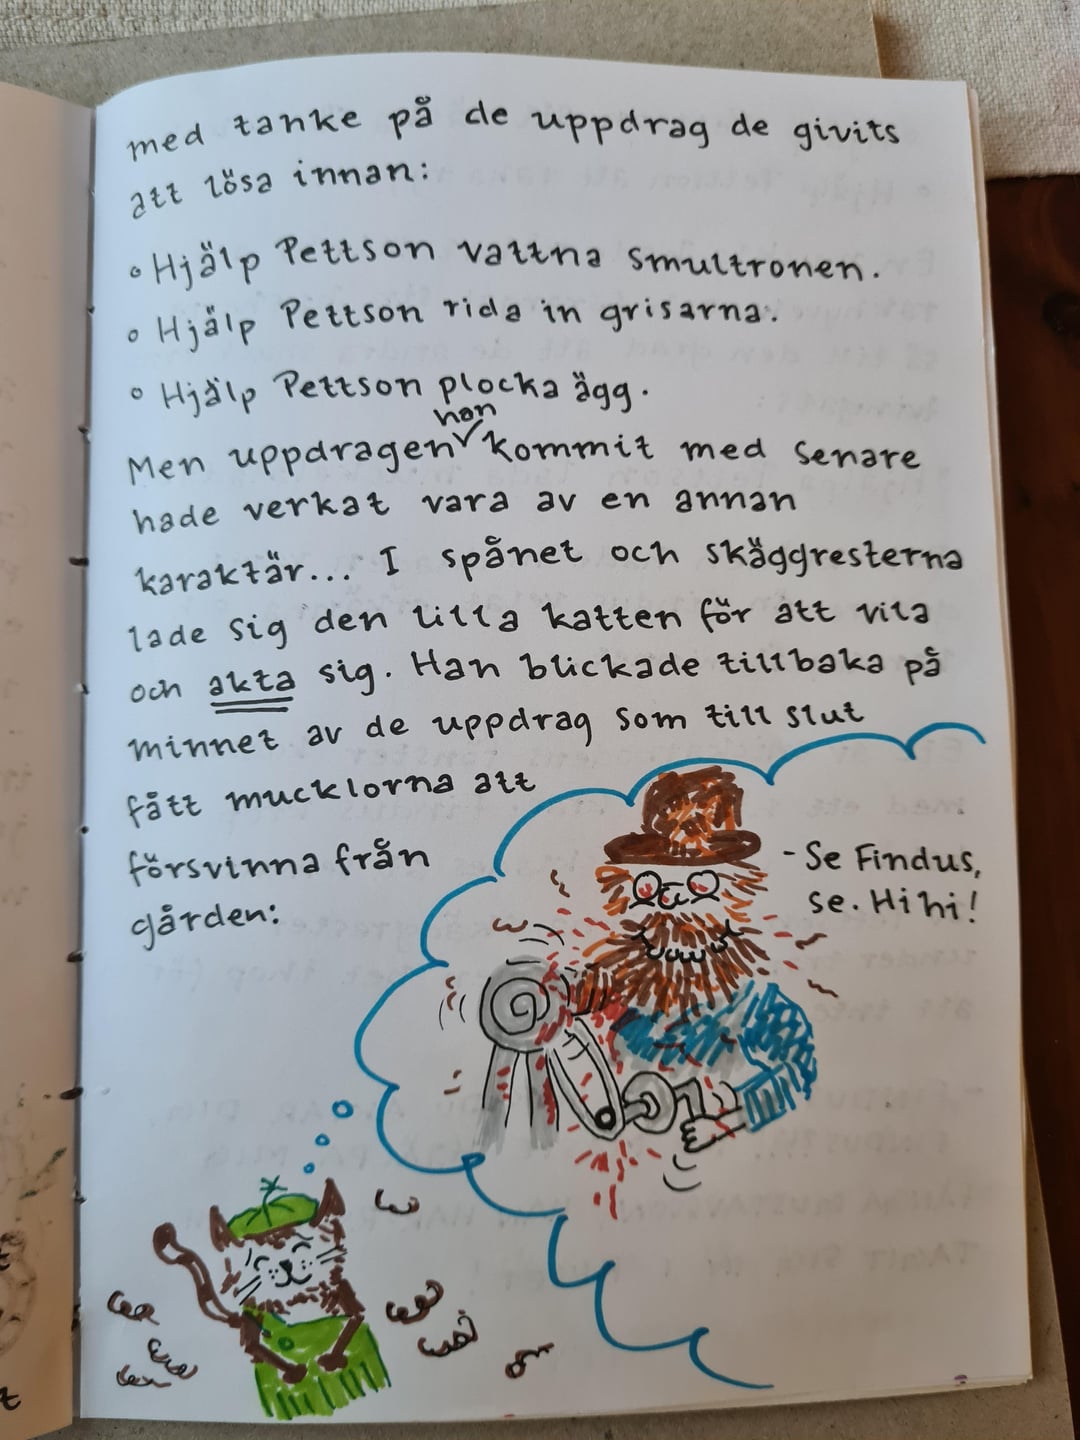 med tanke på de uppdrag de givits
att lösa innan:
° Hjälp Pettson vattna smultronen.
° Hjälp Pettson rida in grisarna.
° Hjälp Pettson plocka ägg.
han
Men uppdragen kommit med senare
hade verkat vara av en annan
karaktär... I spånet och skäggresterna
lade sig den lilla katten för att vila
och akta sig. Han blickade tillbaka på
minnet av de uppdrag som till slut
fått mucklorna att
försvinna från
gården:
- Se Findus,
se. Hihi!